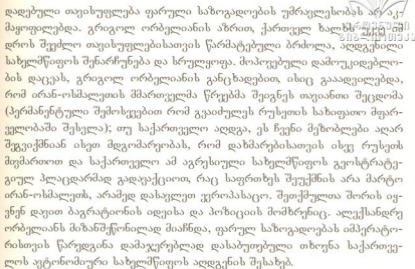 დადებული თავისუფლება ფარული საზოგადოების უმრავლესობას არ აკ-
მაყოფილებდა. გრიგოლ ორბელიანის აზრით, ქართველ ხალხს
დროს შეეძლო თავისუფლებისათვის წარმატებული ბრძოლა, აღდგენილი
სახელმწიფოს შენარჩუნება და სრულყოფა. მოპოვებული დამოუკიდებლო-
ბის დაცვას, გრიგოლ ორბელიანის განცხადებით, ისიც გააადვილებდა,
რომ ირან-ოსმალეთის მმართველმა წრეებმა შეიგნეს თავიანთი შეცდომა
(პერმანენტული შემოსევებით რომ გვაიძულეს რუსეთის სახიფათო მფარ-
ველობაში შესვლა); თუ საქართველო აღდგა, ეს ჩვენი მეზობლები აღარ
შეგვიქმნიან ისეთ მდგომარეობას, რომ დახმარებისათვის ისევ რუსეთს
მივმართოთ და საქართველო ამ აგრესიული სახელმწიფოს გეოსტრატე-
გიულ პლაცდარმად გადავაქციოთ, რაც საფრთხეს შეუქმნის არა მარტო
ირან-ოსმალეთს, არამედ დასავლეთ ევროპასაცო. შეთქმულთა შორის იყ-
ვნენ დავით ბაგრატიონის იდეისა და პოზიციის მომხრენიც. ალექსანდრე
ორბელიანს მიზანშეწონილად მიაჩნდა, ფარულ საზოგადოებას იმპერატო-
რისთვის წარედგინა დამაჯერებლად დასაბუთებული თხოვნა საქართვე-
ლოს ავტონომიური სახელმწიფოს აღდგენის შესახებ.